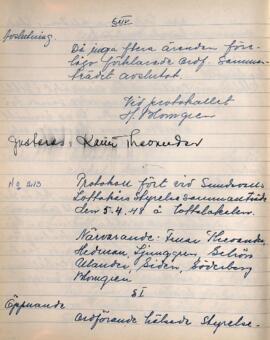 § IV
Avslutning.
Då inga flera ärenden före-
lågo förklarade ordf. Samman-
trädet avslutat.
Vid protokollet
H. Blomgren
Justeras: Karin Theorander
No 213
Protokoll fört vid Sundsvalls
Lottakårs Styrelsesammanträde
den 5.4.48 å Lottalokalen.
Närvarande: Fruar Theorander
Hedman, Ljunggren
Alander, Eiden, Söderberg
Blomgren
§ I
Öppnande
Ordförande hälsade Styrelse-